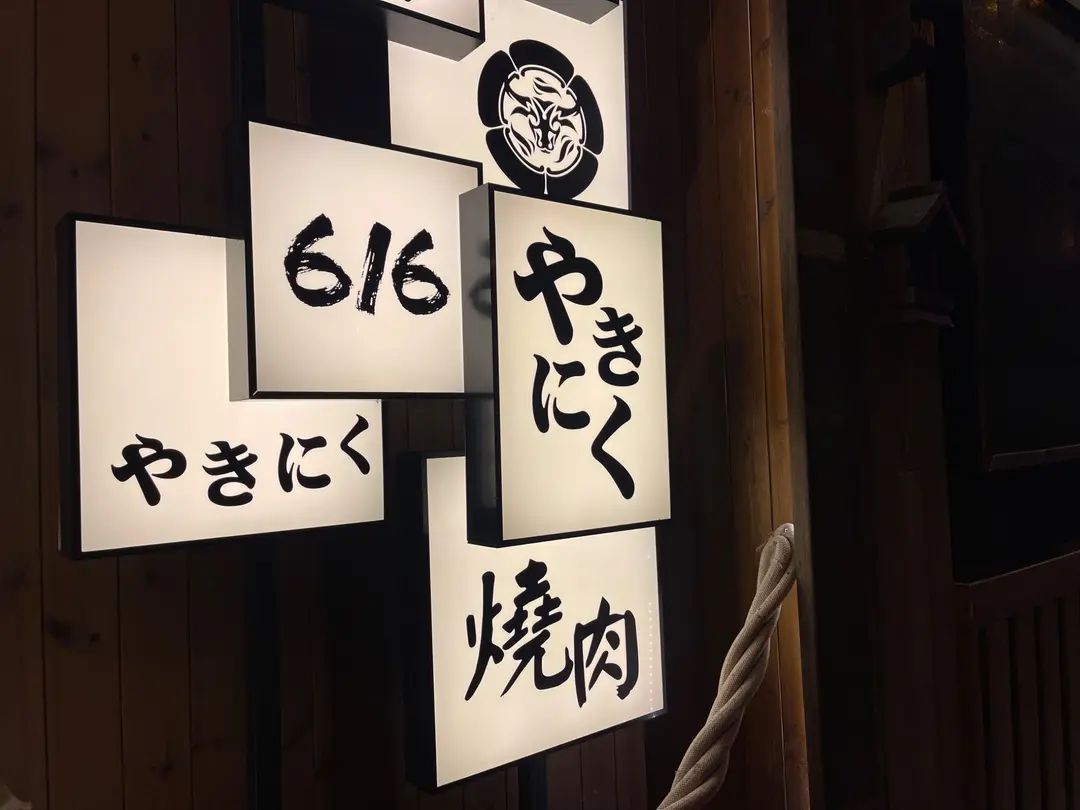 616
やきにく
やきにく
燒肉